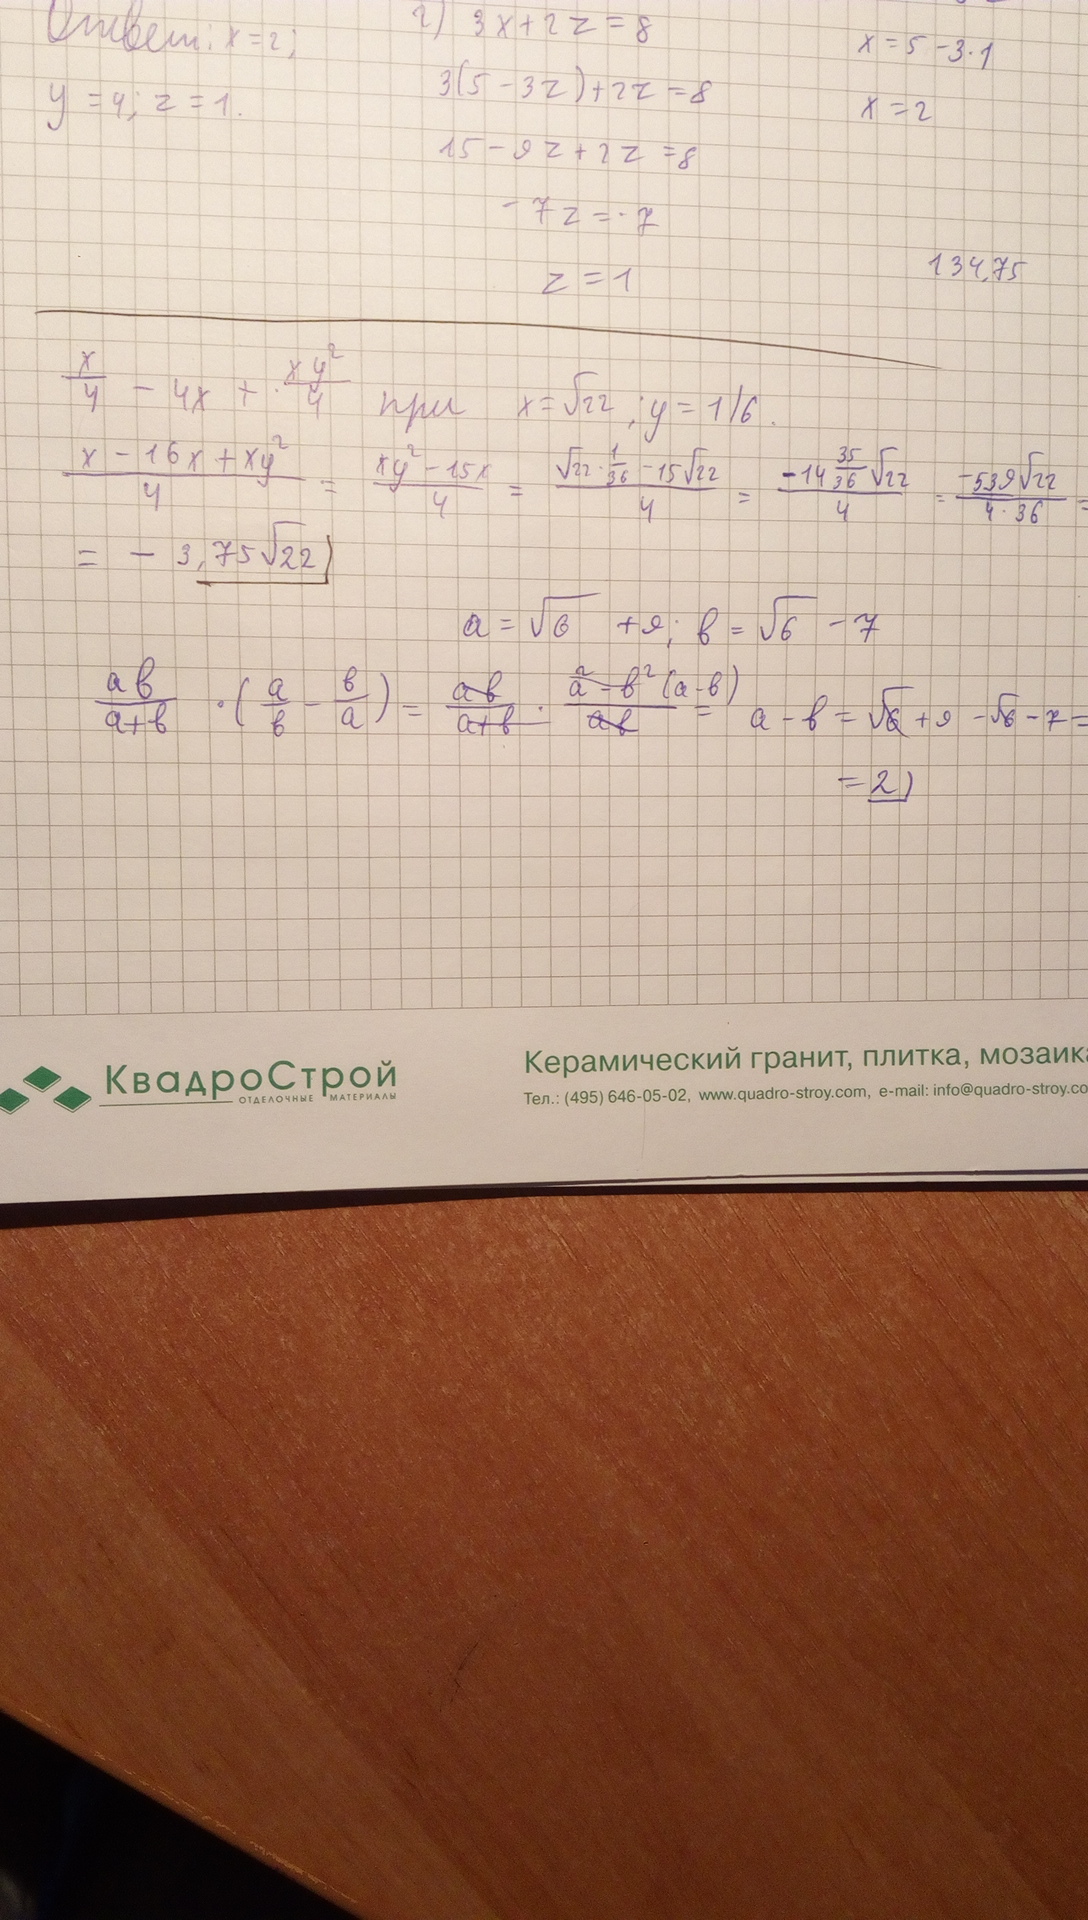 Ответ: x = 2;
y = 4; z = 1.
2) 3x + 2z = 8
3(5 - 3z) + 2z = 8
15 - 9z + 2z = 8
-7z = -7
z = 1
x = 5 - 3·1
x = 2
134,75
x/4 - 4x + xy²/4 при x = √22; y = 1/6.
(x - 16x + xy²)/4 = (xy² - 15x)/4 = (√22 · 1/36 - 15√22)/4 = (-14 35/36 √22)/4 = (-539√22)/(4·36) =
= - 3,75√22
a = √6 + 9; в = √6 - 7
aв/(a+в) · (a/в - в/a) = aв/(a+в) · (a² - в² (a-в))/aв = a - в = √6 + 9 - √6 - 7 =
= 2
КвадроСтрой
ОТДЕЛОЧНЫЕ МАТЕРИАЛЫ
Керамический гранит, плитка, мозаика
Тел.: (495) 646-05-02, www.quadro-stroy.com, e-mail: info@quadro-stroy.co